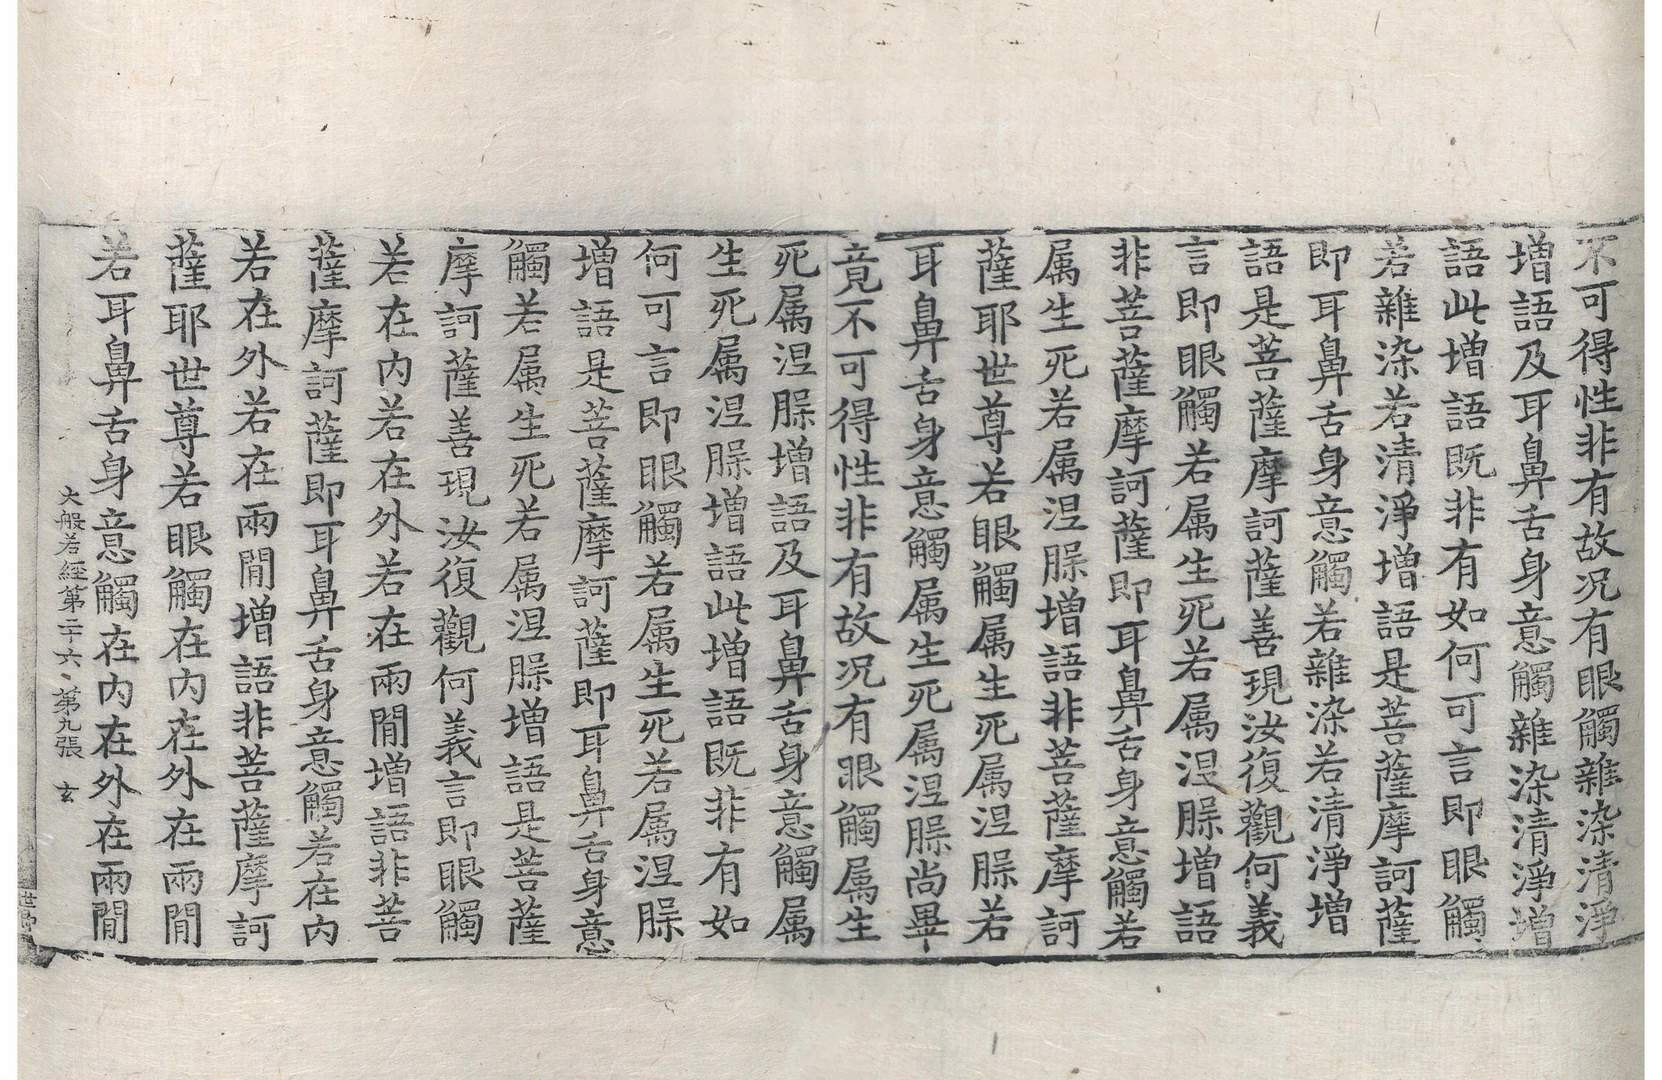 不可得性非有故况有眼觸雜染清淨
增語及耳鼻舌身意觸雜染清淨增
語此增語既非有如何可言即眼觸
若雜染若清淨增語是菩薩摩訶薩
即耳鼻舌身意觸若雜染若清淨增
語是菩薩摩訶薩善現汝復觀何義
言即眼觸若属生死若属涅槃增語
非菩薩摩訶薩即耳鼻舌身意觸若
属生死若属涅槃增語非菩薩摩訶
薩耶世尊若眼觸属生死属涅槃若
耳鼻舌身意觸属生死属涅槃尚畢
竟不可得性非有故况有眼觸属生
死属涅槃增語及耳鼻舌身意觸属
生死属涅槃增語此增語既非有如
何可言即眼觸若属生死若属涅槃
增語是菩薩摩訶薩即耳鼻舌身意
觸若属生死若属涅槃增語是菩薩
摩訶薩善現汝復觀何義言即眼觸
若在内若在外若在兩閒增語非菩
薩摩訶薩即耳鼻舌身意觸若在内
若在外若在兩閒增語非菩薩摩訶
薩耶世尊若眼觸在内在外在兩閒
若耳鼻舌身意觸在内在外在兩閒
大般若經第二十六 第九張 玄